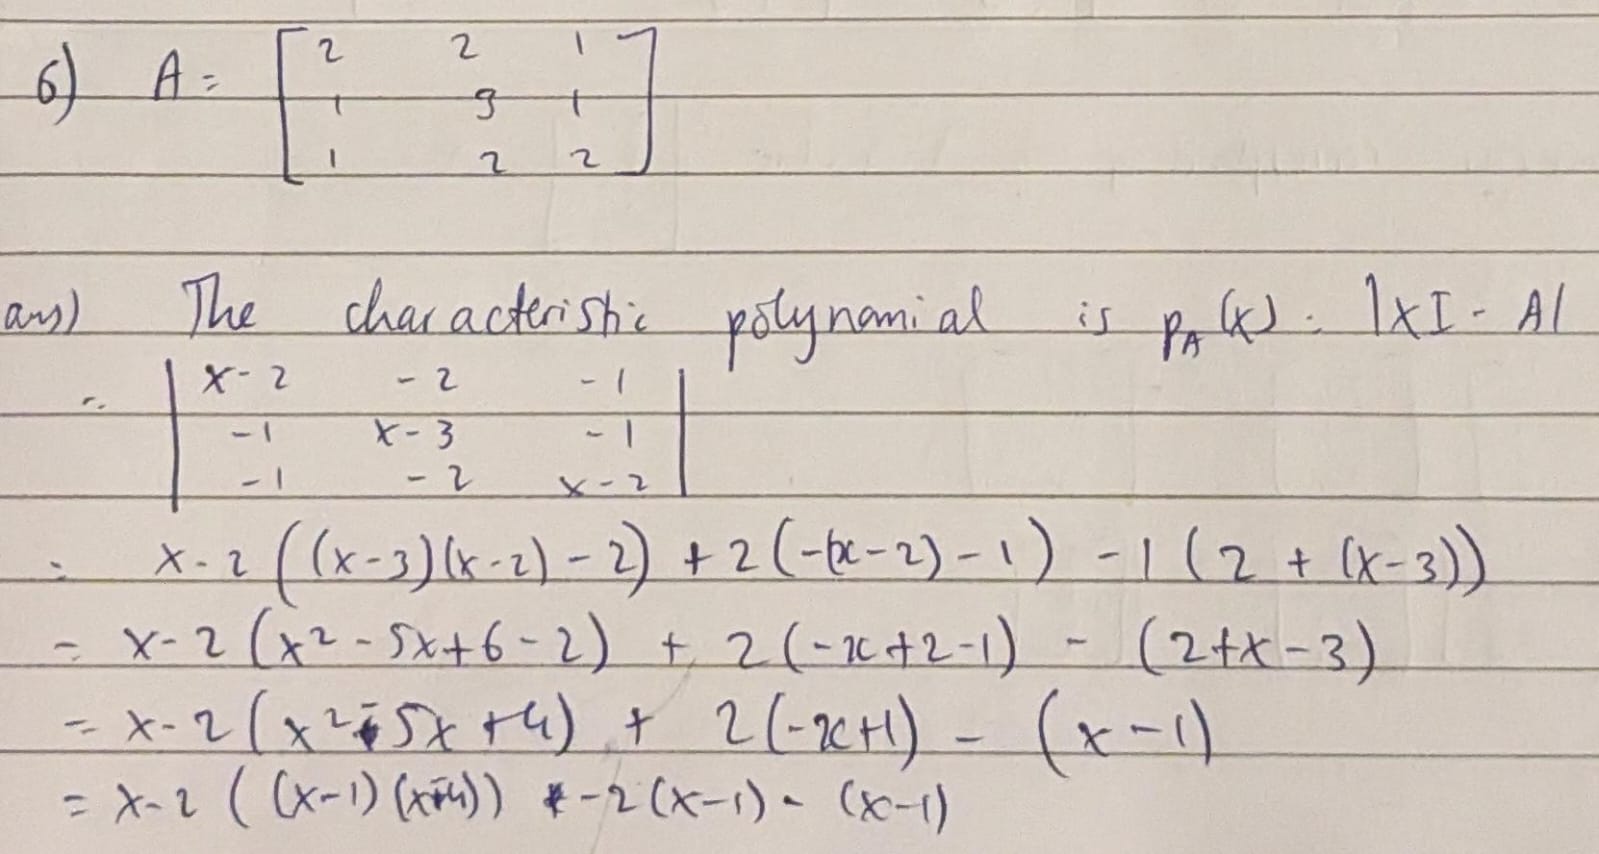 6) A = [ 2 2 1
1 3 1
1 2 2 ]
ans) The characteristic polynomial is p_A(x) = |xI - A|
∴ | x-2 -2 -1 |
| -1 x-3 -1 |
| -1 -2 x-2 |
= x-2 ((x-3)(x-2) - 2) + 2(-(x-2) - 1) - 1 (2 + (x-3))
= x-2 (x² - 5x + 6 - 2) + 2(-x+2-1) - (2+x-3)
= x-2 (x² - 5x + 4) + 2(-x+1) - (x-1)
= x-2 ((x-1)(x-4)) - 2(x-1) - (x-1)